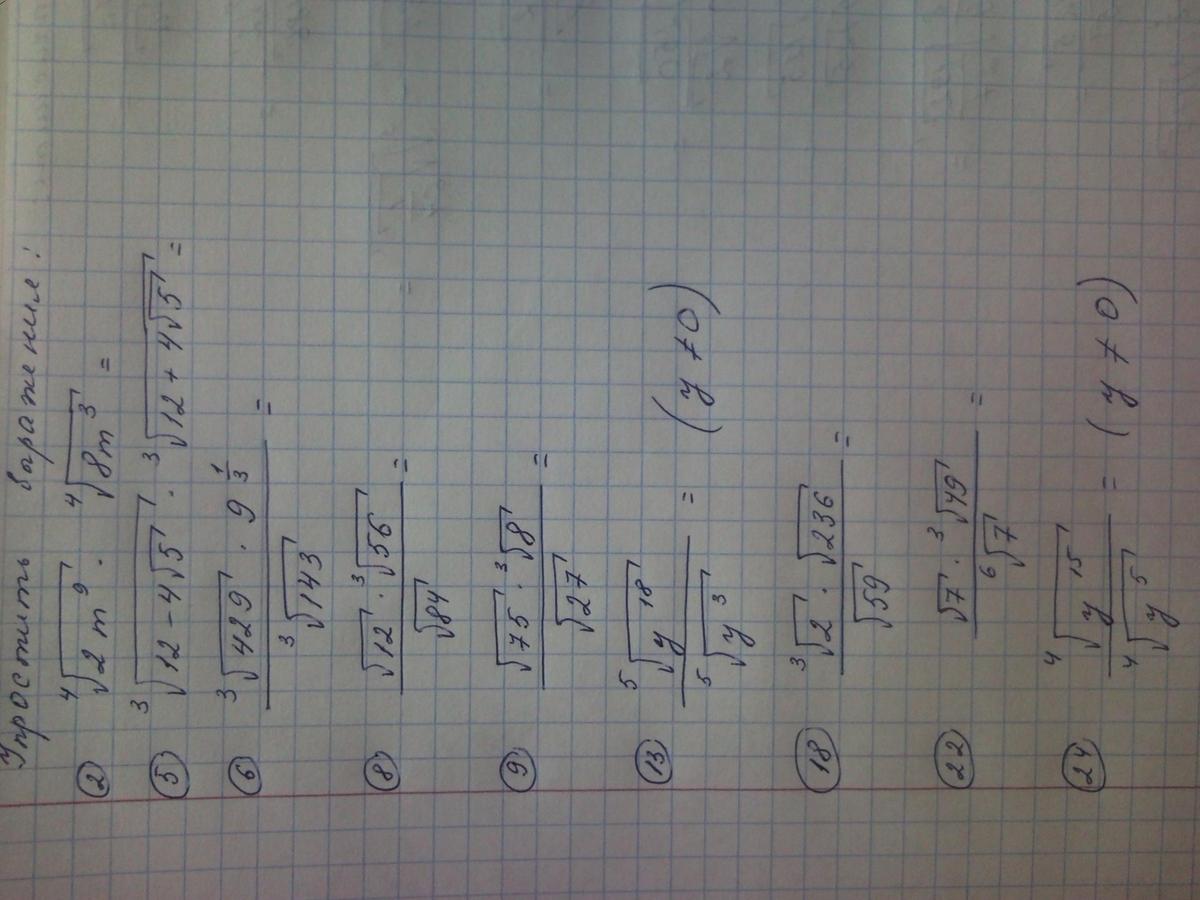 Упростить выражения:
② ⁴√(2m⁹) · ⁴√(8m³) =
⑤ ³√(12 - 4√5) · ³√(12 + 4√5) =
⑥ (³√429 · 9^(1/3)) / ³√143 =
⑧ (√12 · ³√56) / √84 =
⑨ (√75 · ³√8) / √27 =
⑬ ⁵√(y¹⁸) / ⁵√(y³) = (y ≠ 0)
⑱ (³√2 · √236) / √59 =
㉒ (√7 · ³√49) / ⁶√7 =
㉔ ⁴√(y¹⁵) / ⁴√(y⁵) = (y ≠ 0)